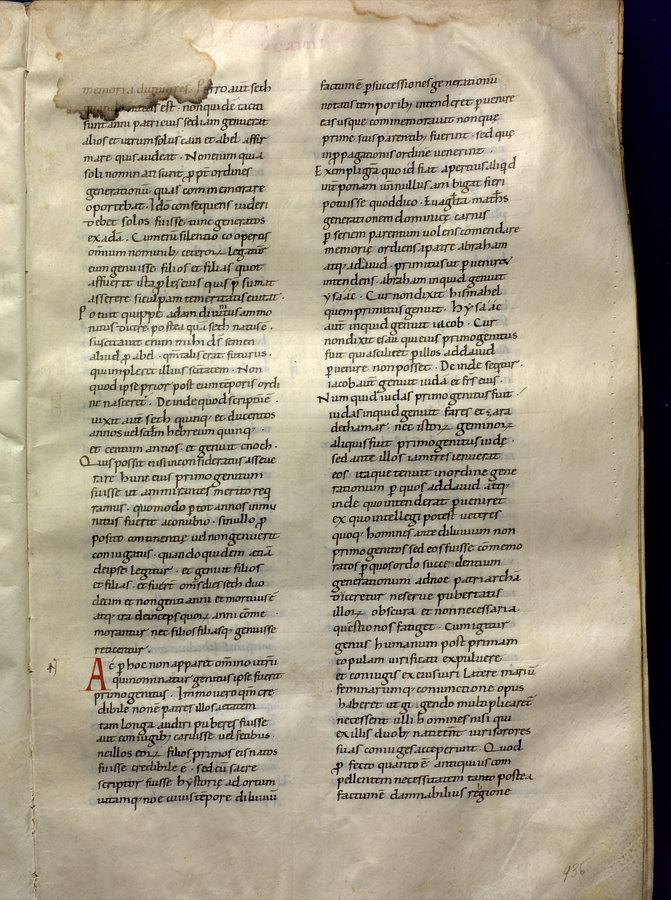 memoria digniores. Porro aut seth
quando natus est. non quidē taciti
sunt anni patri eius sed iam genuerat
alios et utrum solus cain et abel affir
mare quis audeat. Non enim quia
soli nominati sunt ꝓpt̄ ordines
generationū quas commemorare
oportebat. Idō consequens uideri
debet solos fuisse tunc generatos
ex adā. Cum enī silentio coopertis
omnium nominib; ceteroꝝ legatur
eum genuisse filios et filias quot
affuerit ista ꝓles eius quis p̄sumat
asserere si culpam temeritatis euitat.
Potuit quippe adam diuinitus ammo
nitus dicere postea quā seth natus ē.
suscitauit enim mihi dš semen
aliud ꝓ abel. qm̄ talis erat futurus.
qui impleret illius scītatem. Non
quod ipse prior post eum tēporis ordi
ne nasceret. Deinde quod scriptū ē.
uixit aut seth quinq; et ducentos
annos uel scdm̄ hebreum quinq;
et centum annos. et genuit enoch.
Quis possit nisi inconsideratus asseue
rare hunc eius primogenitum
fuisse ut ammirantes merito req
ramus. quomodo ꝑ tot annos inmu
nitus fuerit a conubio. sine ullo ꝓ
posito continentię uel non genuerit
coniugatus. quando quidem etiā
de ipso legitur. et genuit filios
et filias. et fuer̄ om̄s dies seth duo
decim et nongenti anni et mortuus ē
atq; ita deinceps quoꝝ anni cōme
morantur nec filios filiasq; genuisse
reticentur.
Ac ꝑ hoc non apparet om̄ino utrū
qui nominatur genitus ipse fuerit
primogenitus. Immo uero qm̄ cre
dibile non ē patres illos aetatem
tam longa aut inpuberes fuisse
aut coniugib; caruisse uel fetibus.
nec illos eoꝝ filios primos eis natos
fuisse credibile ē. sed cū sacre
scriptor fuisse hystorię ad ortum
uitamq; noe cuius tēpore diluuiū
factum ē ꝑ successiones generationū
notatis temporib; intenderet ꝑuenire
eas usque commemorauit non que
prime suis parentib; fuerint. sed que
in propagationis ordine uenerint.
Exempli gr̄a quo id fiat apertius aliqd
int̄ponam un nullus ambigat fieri
potuisse quod dico. Euaglīsta math̄s
generationem dominicę carnis
ꝑ seriem parentum uolens comendare
memorię ordiens a patre abraham
atq; ad dauid. primitus ut ꝑueniret
intendens abraham inquid genuit
ysaac. Cur non dixit hismahel
quem primitus genuit. hysaac
aut inquid genuit iacob. Cur
non dixit esau qui eius primogenitus
fuit quia scilicet ꝑ illos ad dauid
ꝑuenire non posset. Deinde seqtur.
iacob aut genuit iudā et fr̄s eius.
Numquid iudas primogenitus fuit.
iudas inquid genuit fares et zara
de thamar. nec istoꝝ geminoꝝ
aliquis fuit primogenitus iude.
sed ante illos iam tres genuerat
eos itaque tenuit in ordine gene
rationum ꝑ quos ad dauid. atq;
inde quo intenderat ꝑueniret
ex quo intellegi potest ueteres
quoq; homines ante diluuium non
primogenitos sed eos fuisse cōmemo
ratos ꝑ quos ordo succedentium
generationum ad noe patriarchā
duceretur ne serue pubertatis
illoꝝ obscura et non necessaria
questio nos fatiget. Cum igitur
genus humanum post primam
copulam uiri facti ex puluere
et coniugis ex eius uiri latere mariū
feminarumq; coniunctione opus
haberet ut gignendo multiplicaret
nec essent ulli homines nisi qui
ex illis duob; nati erent uiri sorores
suas coniuges acceperunt. Quod
ꝓfecto quanto ē antiquius com
pellente necessitatem tanto postea
factum ē damnabilius religione
936